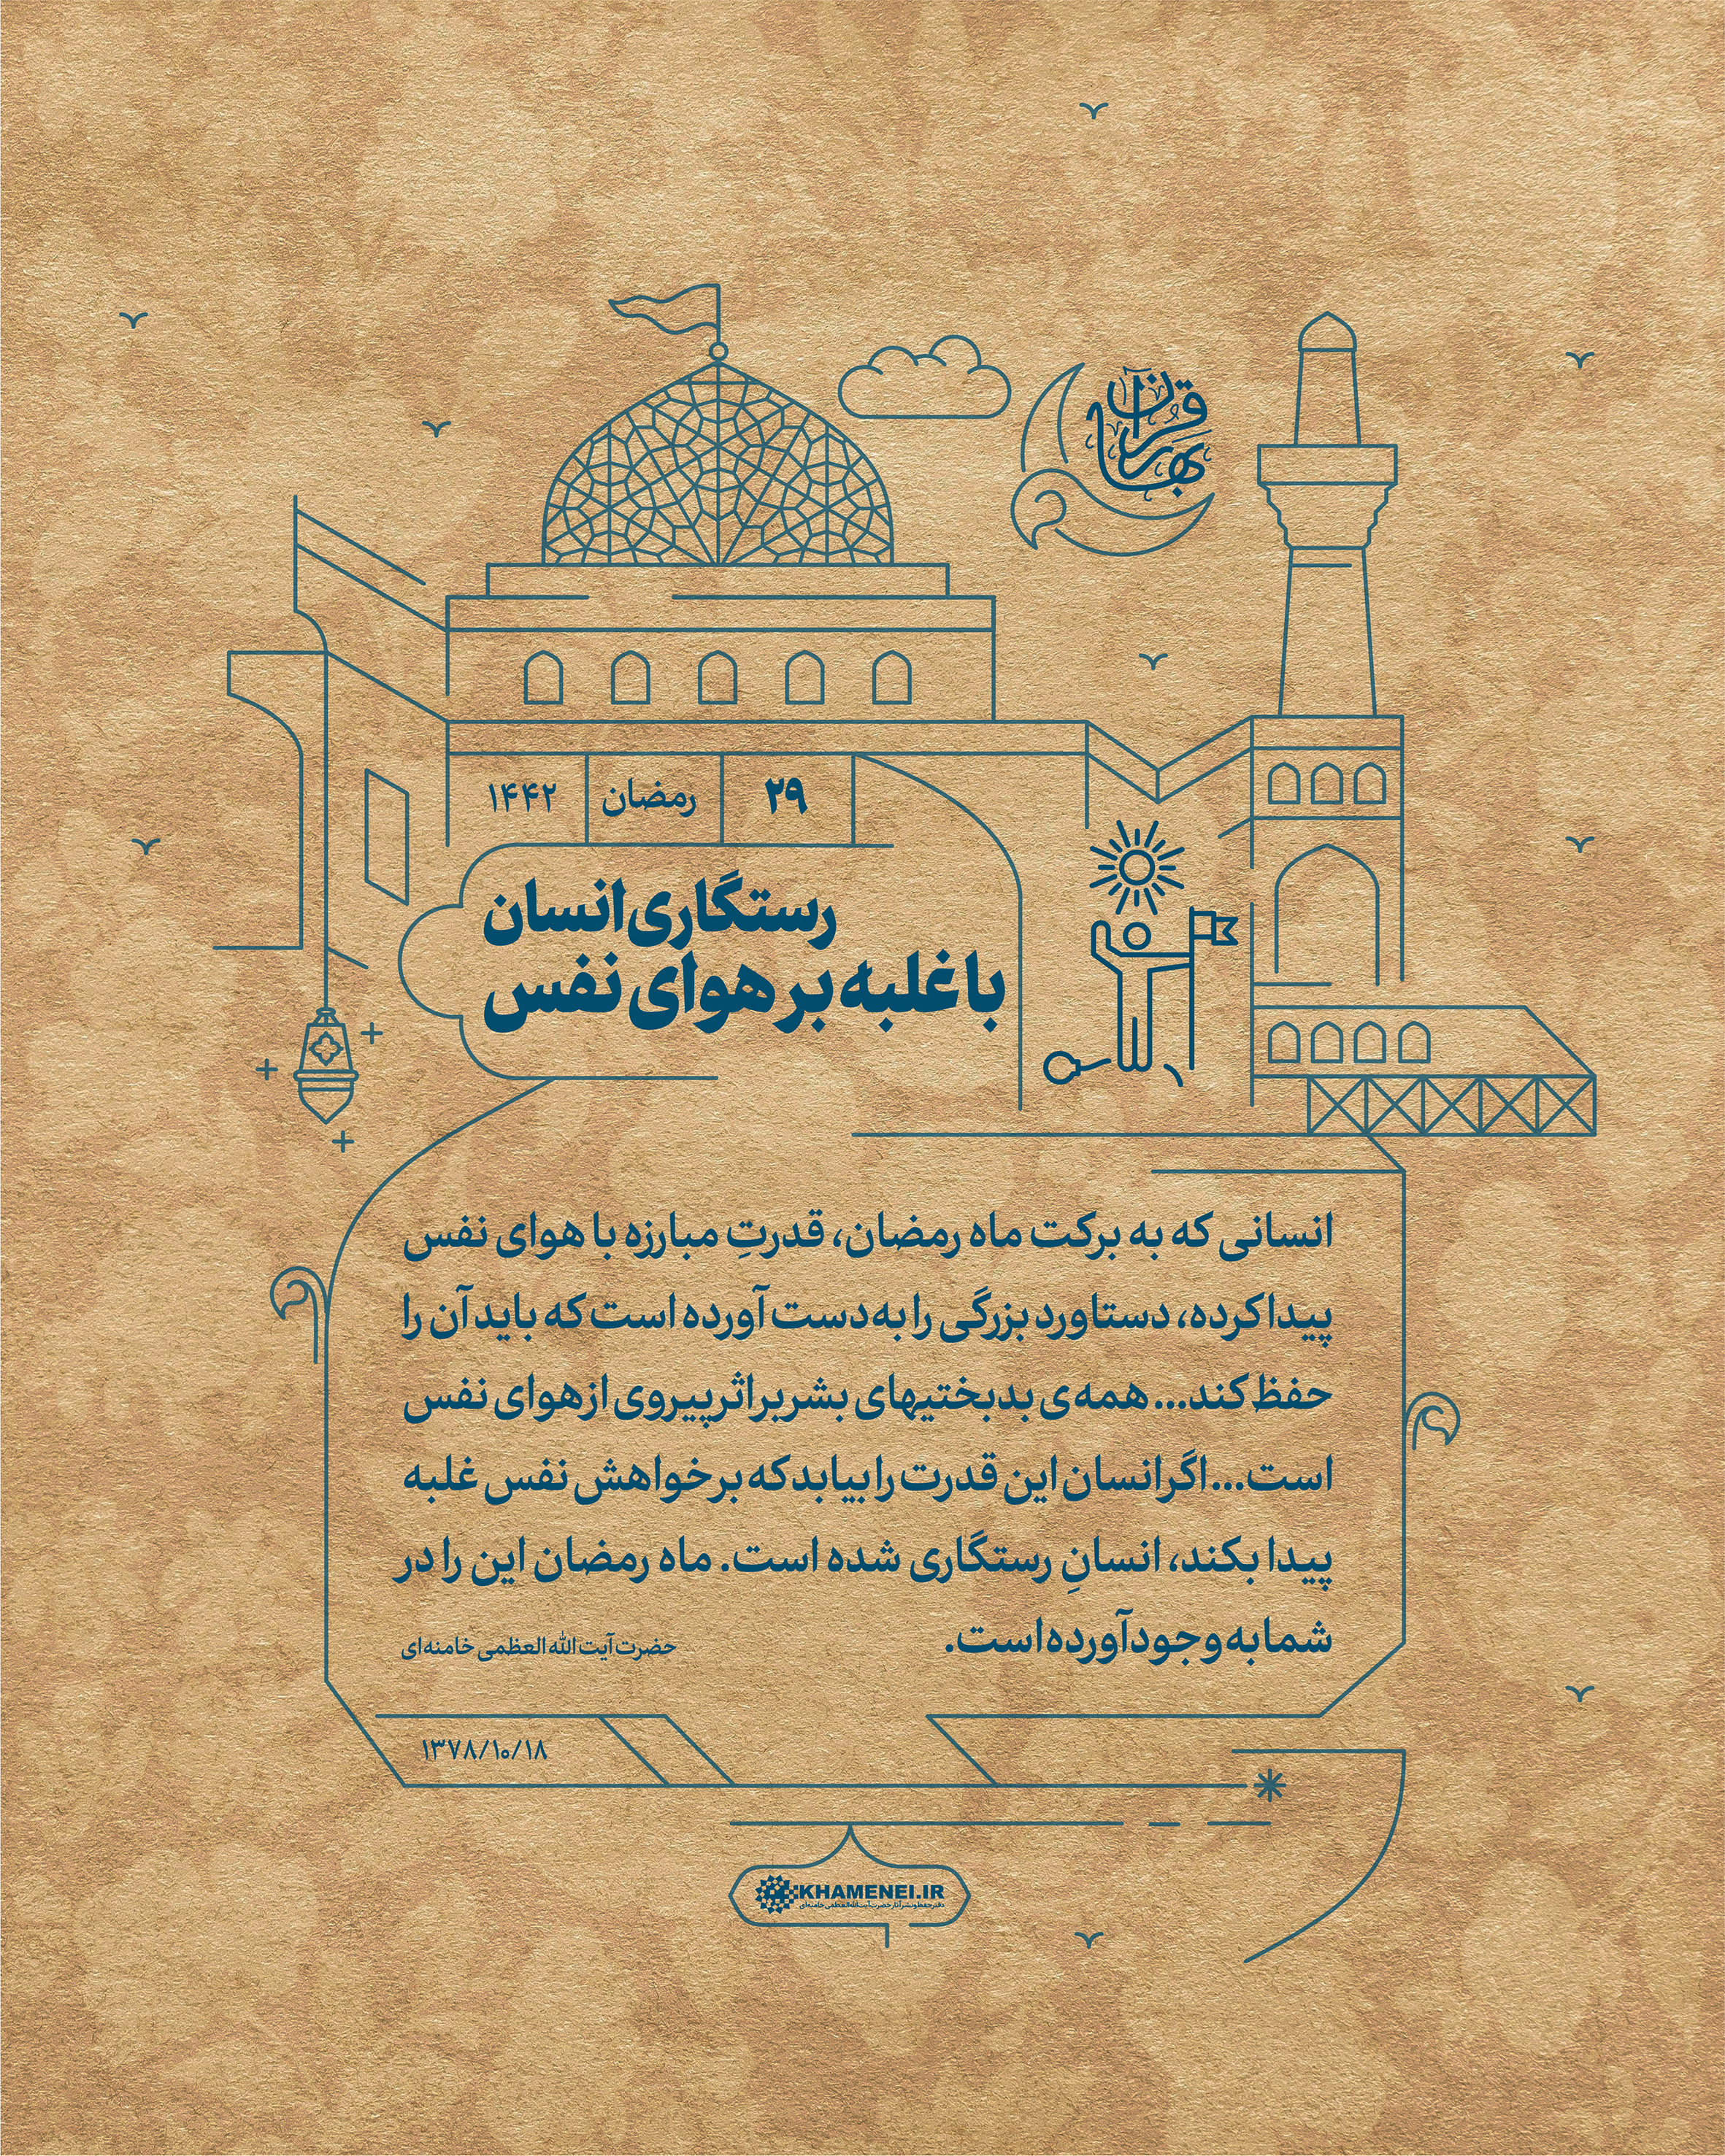 بهار قرآن
۲۹ رمضان ۱۴۴۲
رستگاری انسان
با غلبه بر هوای نفس
انسانی که به برکت ماه رمضان، قدرتِ مبارزه با هوای نفس
پیدا کرده، دستاورد بزرگی را به‌دست آورده است که باید آن را
حفظ کند... همه‌ی بدبختیهای بشر بر اثر پیروی از هوای نفس
است... اگر انسان این قدرت را بیابد که بر خواهش نفس غلبه
پیدا بکند، انسانِ رستگاری شده است. ماه رمضان این را در
شما به وجود آورده است.
حضرت آیت الله العظمی خامنه‌ای
۱۳۷۸/۱۰/۱۸
KHAMENEI.IR
دفتر حفظ و نشر آثار حضرت آیت‌الله‌العظمی خامنه‌ای